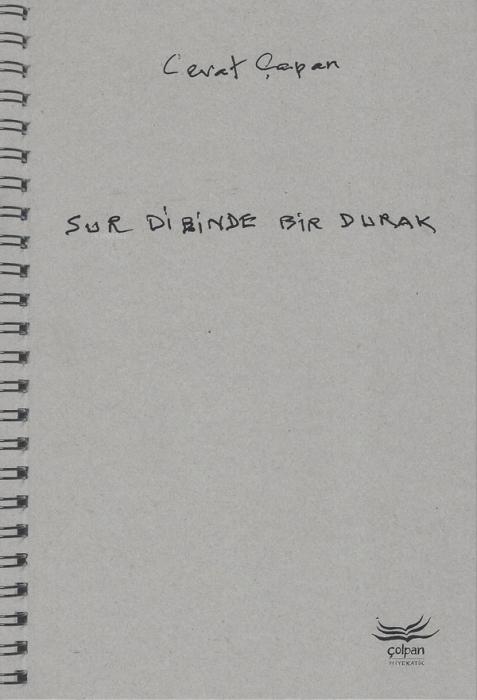 Cevat Çapan
SUR DİBİNDE BİR DURAK
çolpan